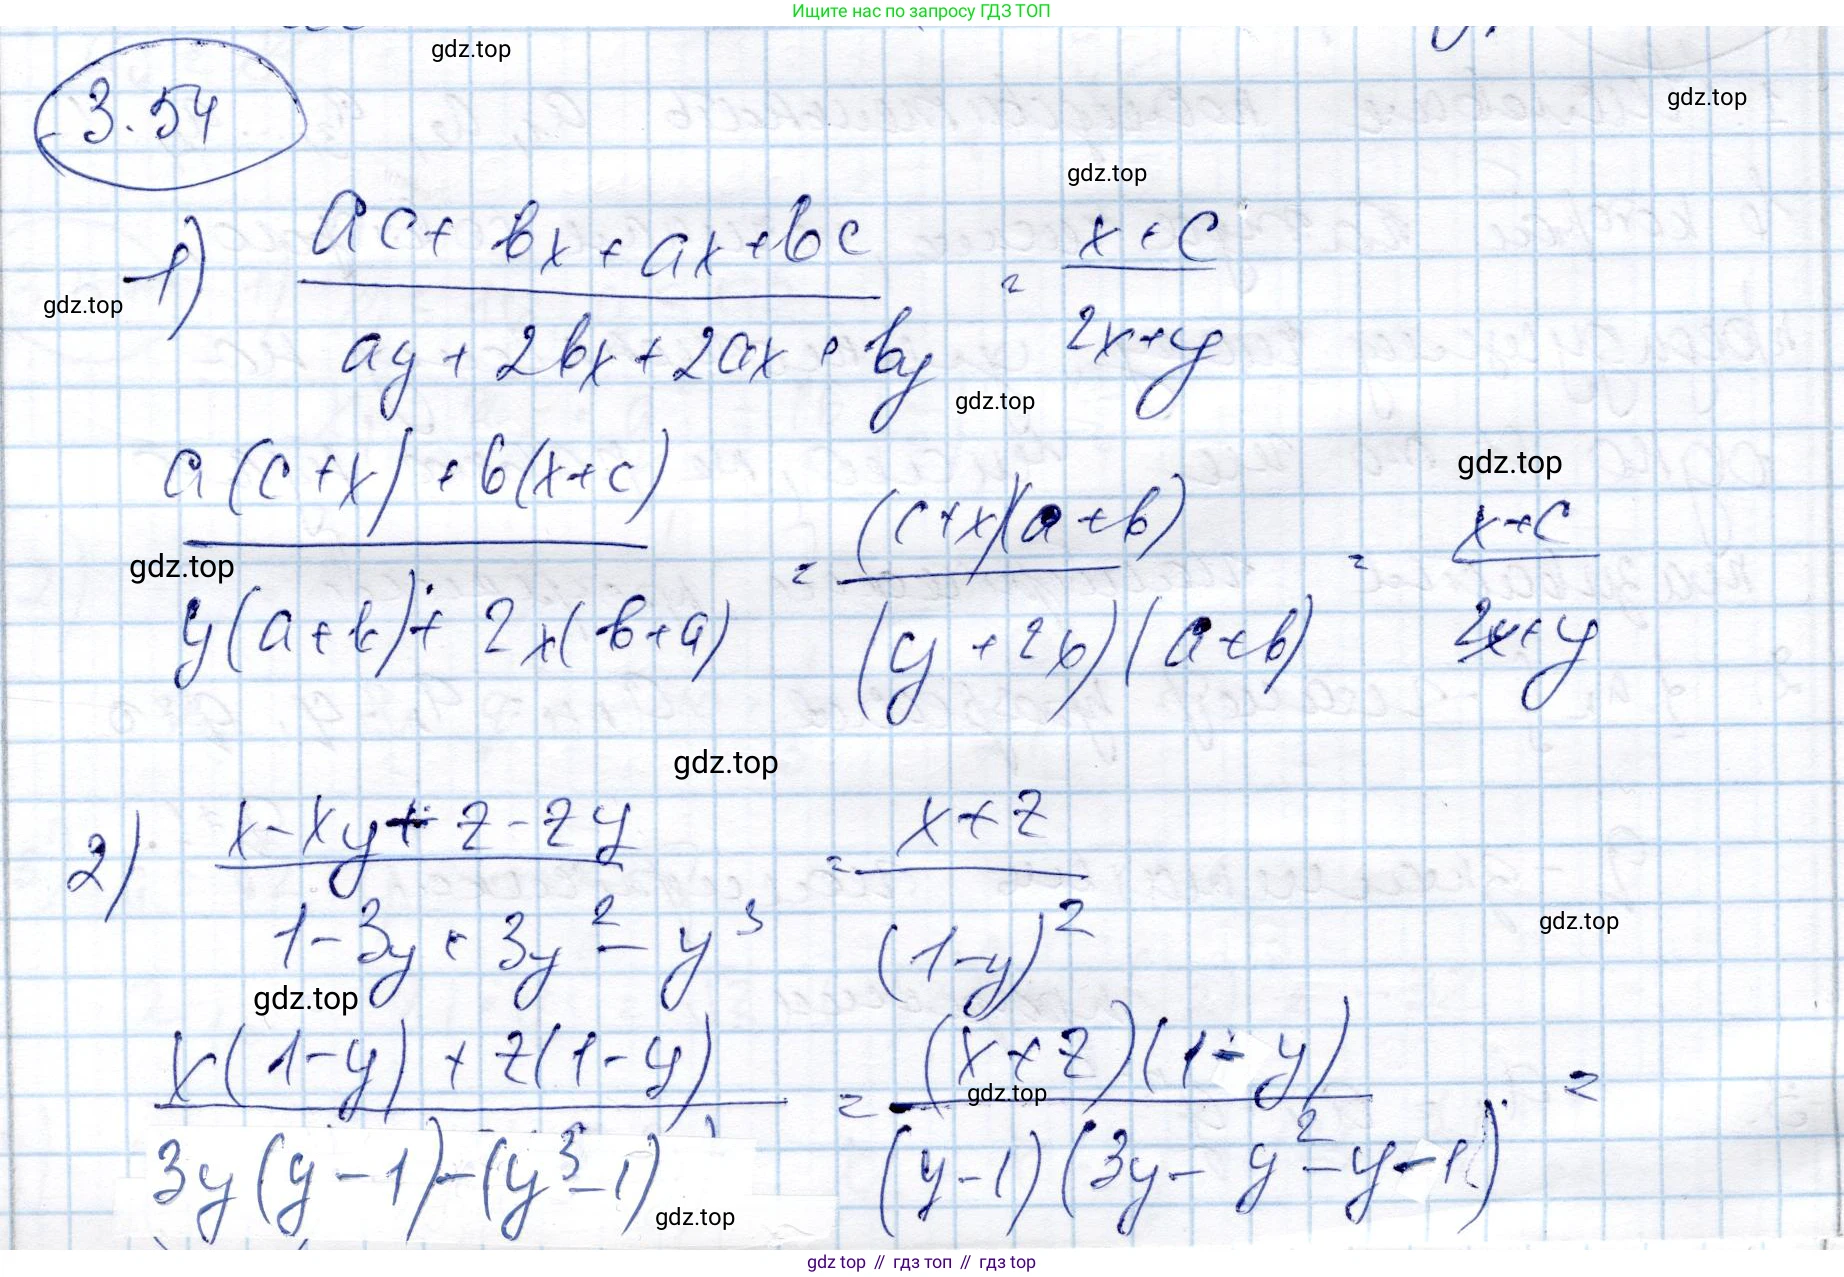 Ищите нас по запросу ГДЗ ТОП
gdz.top
3.54
gdz.top
gdz.top
1) (ac + bx + ax + bc)/(ay + 2bx + 2ax + by) = (x + c)/(2x + y)
gdz.top
gdz.top
(a(c + x) + b(x + c))/(y(a + b) + 2x(b + a)) = ((c + x)(a + b))/((y + 2x)(a + b)) = (x + c)/(2x + y)
gdz.top
gdz.top
gdz.top
2) (x - xy + z - zy)/(1 - 3y + 3y² - y³) = (x + z)/(1 - y)²
gdz.top
gdz.top
(x(1 - y) + z(1 - y))/(3y(y - 1) - (y³ - 1)) = ((x + z)(1 - y))/((y - 1)(3y - y² - y - 1)) =
gdz.top
gdz.top
gdz top // гдз топ // gdz top